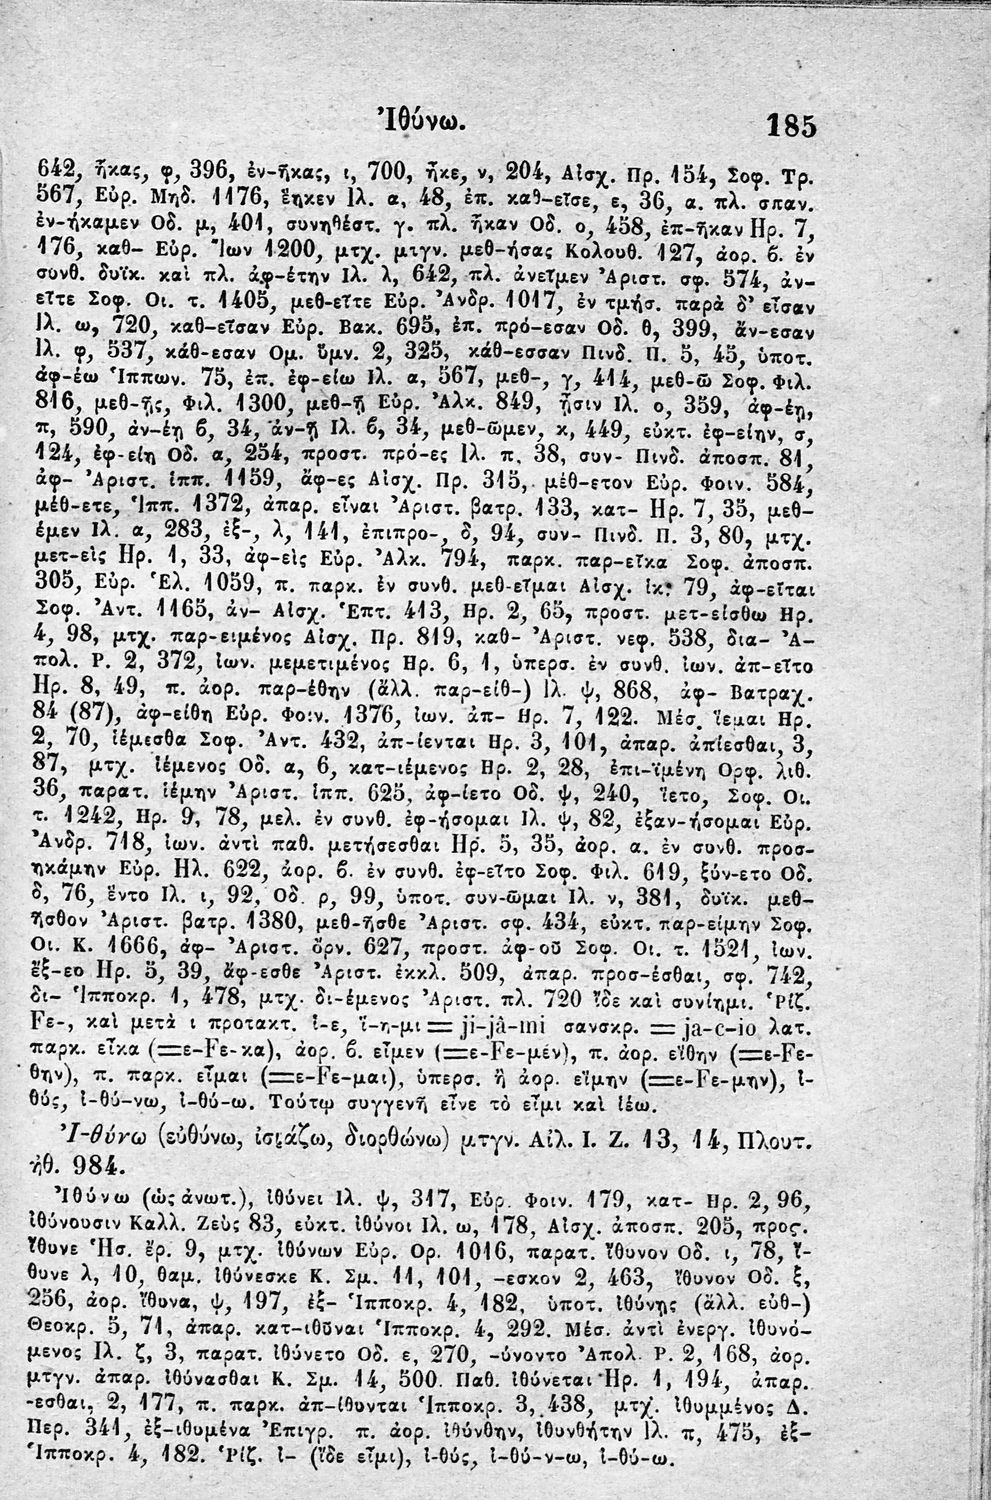 Ἰθύνω.
185
642, ἧκας, φ, 396, ἐν-ῆκας, ι, 700, ἧκε, ν, 204, Αἰσχ. Πρ. 154, Σοφ. Τρ.
567, Εὐρ. Μηδ. 1176, ἕηκεν Ἰλ. α, 48, ἐπ. καθ-εῖσε, ε, 36, α. πλ. σπαν.
ἐν-ήκαμεν Οδ. μ, 401, συνηθέστ. γ. πλ. ἧκαν Οδ. ο, 458, ἐπ-ῆκαν Ηρ. 7,
176, καθ- Εὐρ. Ἴων 1200, μτχ. μτγν. μεθ-ήσας Κολουθ. 127, ἀορ. β. ἐν
συνθ. δυϊκ. καὶ πλ. ἀφ-έτην Ιλ. λ, 642, πλ. ἀνεῖμεν Ἀριστ. σφ. 574, ἀν-
εῖτε Σοφ. Οι. τ. 1405, μεθ-εῖτε Εὐρ. Ἀνδρ. 1017, ἐν τμήσ. παρὰ δ' εἷσαν
Ἰλ. ω, 720, καθ-εῖσαν Εὐρ. Βακ. 695, ἐπ. πρό-εσαν Οδ. θ, 399, ἄν-εσαν
Ἰλ. φ, 537, κάθ-εσαν Ομ. ὕμν. 2, 325, κάθ-εσσαν Πινδ. Π. 5, 45, ὑποτ.
ἀφ-έω Ἱππων. 75, ἐπ. ἐφ-είω Ιλ. α, 567, μεθ-, γ, 414, μεθ-ῶ Σοφ. Φιλ.
816, μεθ-ῇς, Φιλ. 1300, μεθ-ῇ Εὐρ. Ἀλκ. 849, ᾗσιν Ιλ. ο, 359, ἀφ-έῃ,
π, 590, ἀν-έῃ β, 34, ἀν-ῇ Ιλ. β, 34, μεθ-ῶμεν, κ, 449, εὐκτ. ἐφ-είην, σ,
124, ἐφ-είη Οδ. α, 254, προστ. πρό-ες Ἰλ. π. 38, συν- Πινδ. ἀποσπ. 81,
ἀφ- Ἀριστ. ἱππ. 1159, ἄφ-ες Αἰσχ. Πρ. 315, μέθ-ετον Εὐρ. Φοιν. 584,
μέθ-ετε, Ἱππ. 1372, ἀπαρ. εἷναι Ἀριστ. βατρ. 133, κατ- Ηρ. 7, 35, μεθ-
έμεν Ιλ. α, 283, ἐξ-, λ, 141, ἐπιπρο-, δ, 94, συν- Πινδ. Π. 3, 80, μτχ.
μετ-εὶς Ηρ. 1, 33, ἀφ-εὶς Εὐρ. Ἀλκ. 794, παρκ. παρ-εῖκα Σοφ. ἀποσπ.
305, Εὐρ. Ἑλ. 1059, π. παρκ. ἐν συνθ. μεθ-εῖμαι Αἰσχ. ἱκ. 79, ἀφ-εῖται
Σοφ. Ἀντ. 1165, ἀν- Αἰσχ. Ἑπτ. 413, Ηρ. 2, 65, προστ. μετ-είσθω Ηρ.
4, 98, μτχ. παρ-ειμένος Αἰσχ. Πρ. 819, καθ- Ἀριστ. νεφ. 538, δια- Ἀ-
πολ. Ρ. 2, 372, ἰων. μεμετιμένος Ηρ. 6, 1, ὑπερσ. ἐν συνθ. ἰων. ἀπ-εῖτο
Ηρ. 8, 49, π. ἀορ. παρ-έθην (ἄλλ. παρ-είθ-) Ἰλ. ψ, 868, ἀφ- Βατραχ.
84 (87), ἀφ-είθη Εὐρ. Φοιν. 1376, ἰων. ἀπ- Ηρ. 7, 122. Μέσ. ἵεμαι Ηρ.
2, 70, ἱέμεσθα Σοφ. Ἀντ. 432, ἀπ-ίενται Ηρ. 3, 101, ἀπαρ. ἀπίεσθαι, 3,
87, μτχ. ἱέμενος Οδ. α, 6, κατ-ιέμενος Ηρ. 2, 28, ἐπι-ϊμένη Ορφ. λιθ.
36, παρατ. ἱέμην Ἀριστ. ἱππ. 625, ἀφ-ίετο Οδ. ψ, 240, ἵετο, Σοφ. Οι.
τ. 1242, Ηρ. 9, 78, μελ. ἐν συνθ. ἐφ-ήσομαι Ιλ. ψ, 82, ἐξαν-ήσομαι Εὐρ.
Ἀνδρ. 718, ἰων. ἀντὶ παθ. μετήσεσθαι Ηρ. 5, 35, ἀορ. α. ἐν συνθ. προσ-
ηκάμην Εὐρ. Ηλ. 622, ἀορ. β. ἐν συνθ. ἐφ-εῖτο Σοφ. Φιλ. 619, ξύν-ετο Οδ.
δ, 76, ἕντο Ιλ. ι, 92, Οδ. ρ, 99, ὑποτ. συν-ῶμαι Ιλ. ν, 381, δυϊκ. μεθ-
ῆσθον Ἀριστ. βατρ. 1380, μεθ-ῆσθε Ἀριστ. σφ. 434, εὐκτ. παρ-είμην Σοφ.
Οι. Κ. 1666, ἀφ- Ἀριστ. ὄρν. 627, προστ. ἀφ-οῦ Σοφ. Οι. τ. 1521, ἰων.
ἔξ-εο Ηρ. 5, 39, ἄφ-εσθε Ἀριστ. ἐκκλ. 509, ἀπαρ. προσ-έσθαι, σφ. 742,
δι- Ἱπποκρ. 1, 478, μτχ. δι-έμενος Ἀριστ. πλ. 720 ἴδε καὶ συνίημι. Ῥίζ.
Fε-, καὶ μετὰ ι προτακτ. ἱ-ε, ἵ-η-μι = ji-jâ-mi σανσκρ. = ja-c-io λατ.
παρκ. εἷκα (=ε-Fε-κα), ἀορ. β. εἷμεν (=ε-Fε-μέν), π. ἀορ. εἵθην (=ε-Fε-
θην), π. παρκ. εἷμαι (=ε-Fε-μαι), ὑπερσ. ἢ ἀορ. εἵμην (=ε-Fε-μην), ἰ-
θύς, ἰ-θύ-νω, ἰ-θύ-ω. Τούτῳ συγγενῆ εἶνε τὸ εἶμι καὶ ἱέω.
Ἰ-θύνω (εὐθύνω, ἰσιάζω, διορθώνω) μτγν. Αἰλ. Ι. Ζ. 13, 14, Πλουτ.
ἠθ. 984.
Ἰθύνω (ὡς ἀνωτ.), ἰθύνει Ιλ. ψ, 317, Εὐρ. Φοιν. 179, κατ- Ηρ. 2, 96,
ἰθύνουσιν Καλλ. Ζεὺς 83, εὐκτ. ἰθύνοι Ιλ. ω, 178, Αἰσχ. ἀποσπ. 205, προς.
ἴθυνε Ἡσ. ἔρ. 9, μτχ. ἰθύνων Εὐρ. Ορ. 1016, παρατ. ἴθυνον Οδ. ι, 78, ἴ-
θυνε λ, 10, θαμ. ἰθύνεσκε Κ. Σμ. 11, 101, -εσκον 2, 463, ἴθυνον Οδ. ξ,
256, ἀορ. ἴθυνα, ψ, 197, ἐξ- Ἱπποκρ. 4, 182, ὑποτ. ἰθύνῃς (ἄλλ. εὐθ-)
Θεοκρ. 5, 71, ἀπαρ. κατ-ιθῦναι Ἱπποκρ. 4, 292. Μέσ. ἀντὶ ἐνεργ. ἰθυνό-
μενος Ἰλ. ζ, 3, παρατ. ἰθύνετο Οδ. ε, 270, -ύνοντο Ἀπολ. Ρ. 2, 168, ἀορ.
μτγν. ἀπαρ. ἰθύνασθαι Κ. Σμ. 14, 500. Παθ. ἰθύνεται Ηρ. 1, 194, ἀπαρ.
-εσθαι, 2, 177, π. παρκ. ἀπ-ίθυνται Ἱπποκρ. 3, 438, μτχ. ἰθυμμένος Δ.
Περ. 341, ἐξ-ιθυμένα Ἐπιγρ. π. ἀορ. ἰθύνθην, ἰθυνθήτην Ἰλ. π, 475, ἐξ-
Ἱπποκρ. 4, 182. Ῥίζ. ἰ- (ἴδε εἶμι), ἰ-θύς, ἰ-θύ-ν-ω, ἰ-θύ-ω.